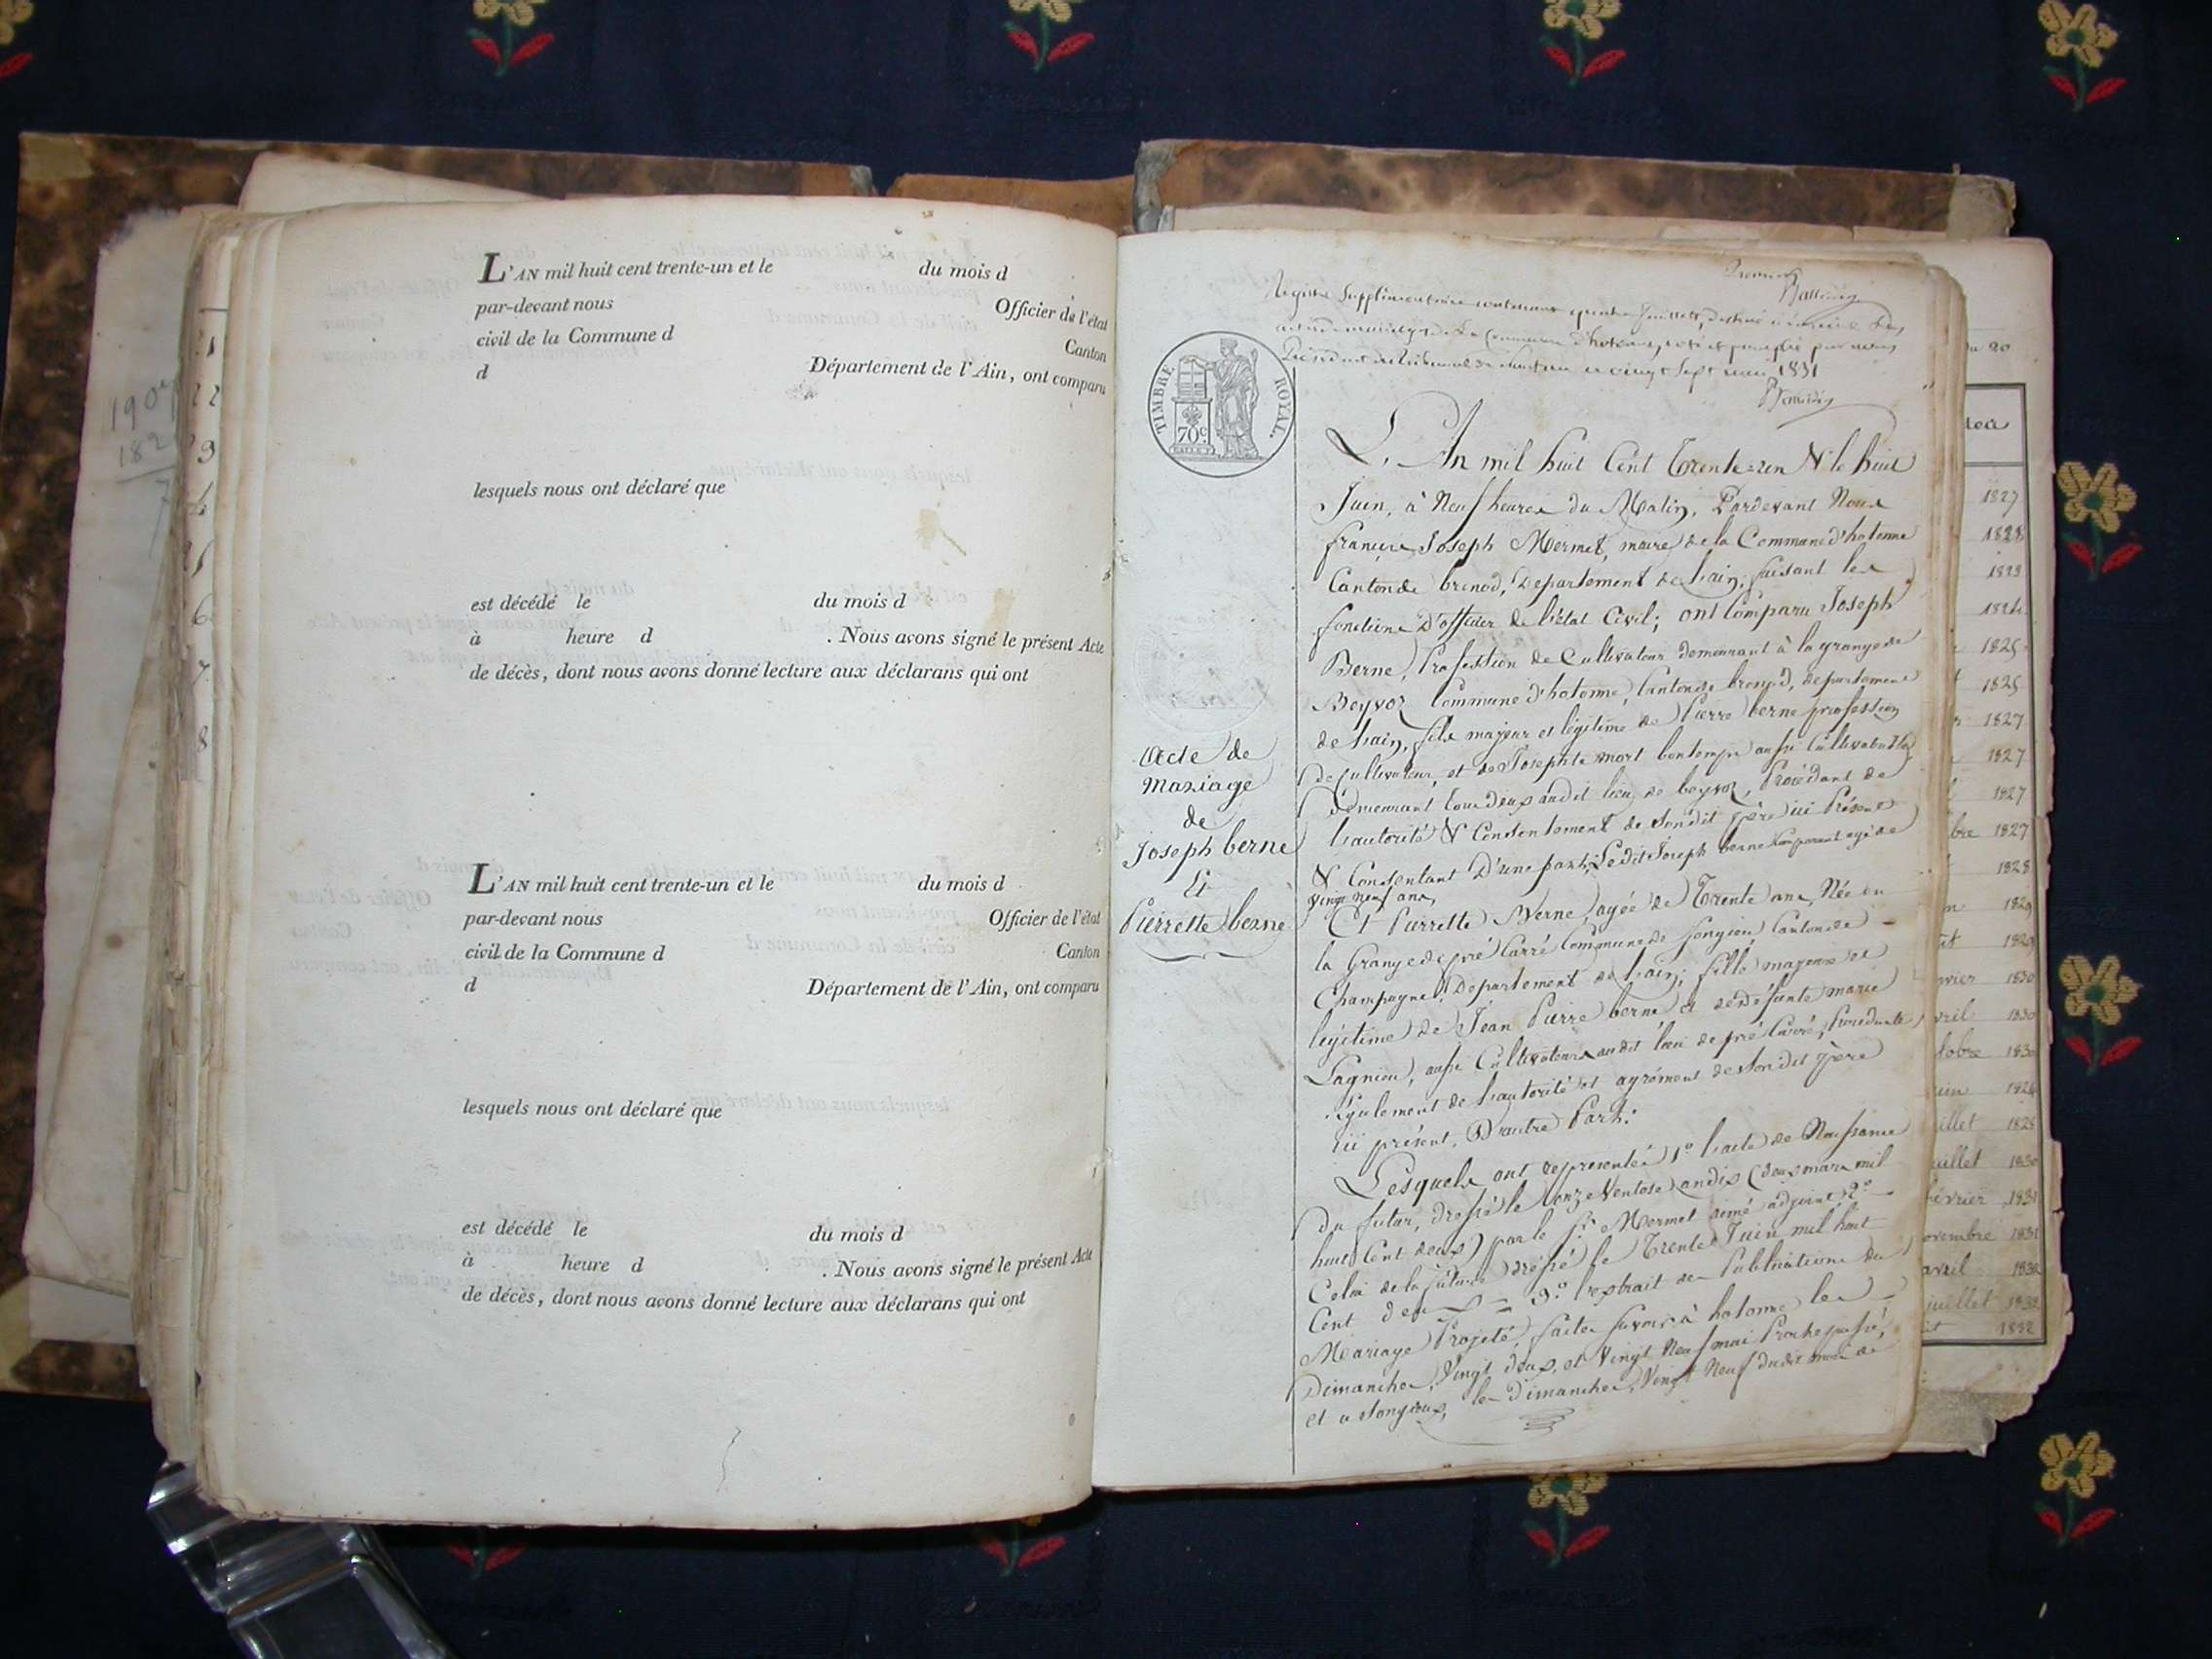 L'AN mil huit cent trente-un et le du mois d
par-devant nous Officier de l'état
civil de la Commune d Canton
d Département de l'Ain, ont comparu
lesquels nous ont déclaré que
est décédé le du mois d
à heure d . Nous avons signé le présent Acte
de décès, dont nous avons donné lecture aux déclarans qui ont
L'AN mil huit cent trente-un et le du mois d
par-devant nous Officier de l'état
civil de la Commune d Canton
d Département de l'Ain, ont comparu
lesquels nous ont déclaré que
est décédé le du mois d
à heure d . Nous avons signé le présent Acte
de décès, dont nous avons donné lecture aux déclarans qui ont
1907
182
Registre Supplémentaire contenant quatre feuillets, destiné
de la Commune d'hotonne, coté et paraphé par nous
Président du tribunal de Nantua ce vingt Sept mai 1831
TIMBRE ROYAL.
70c
Acte de
Mariage
de
Joseph berne
Et
Pierrette berne
L'An mil huit Cent Trente-un & le huit
Juin, à Neuf heures du Matin, Pardevant Nous
françois Joseph Mermet, maire de la Commune d'hotonne
Canton de brenod, Departement de Lain, faisant les
fonctions D'officier de l'état Civil; ont Comparu Joseph
Berne, Profession de Cultivateur demeurant à la grange de
Beyvoz Commune d'hotonne, Canton de brenod, departement
de Lain, fils majeur et légitime de Pierre berne profession
de Cultivateur, et de Josephte mort bontemps aussi Cultivatrice
Demeurant tous deux audit lieu de beyvoz, Procédant de
Lautorité & Consentement de Sondit père ici Présent
& Consentant D'une part, Ledit Joseph berne Comparant agé de
vingt neuf ans,
Et Pierrette Berne, agée de Trente ans, Née en
la Grange de pré Carré Commune de Songieu, Canton de
Champagne, Departement de Lain; fille majeure et
légitime de Jean Pierre berne et de défunte marie
Lagnieu, aussi Cultivateurs audit lieu de pré Carré, Procédante
également de Lautorité et agrément de Sondit père
ici présent, D'autre Part:
Lesquels ont représenté 1° Lacte de Naissance
Du futur, dressé le onze Ventose an dix (deux mars mil
huit Cent deux) par le Sr. Mermet aimé adjoint 2°
Celui de la future dressé le Trente Juin mil huit
Cent deux = 3° Lextrait des Publications du
Mariage Projeté, faites Savoir à hotonne les
Dimanches, Vingt deux, et Vingt Neuf mai Proche passé,
et a Songieux, les Dimanches, Vingt Neuf dudit mois de
du 20
1827
1828
1823
1824
1825
1825
1827
1827
1827
bre 1827
1828
1829
1829
nvier 1830
vril 1830
tobre 1830
uin 1824
uillet 1828
uillet 1830
février 1831
novembre 1831
avril 1832
juillet 1832
1832